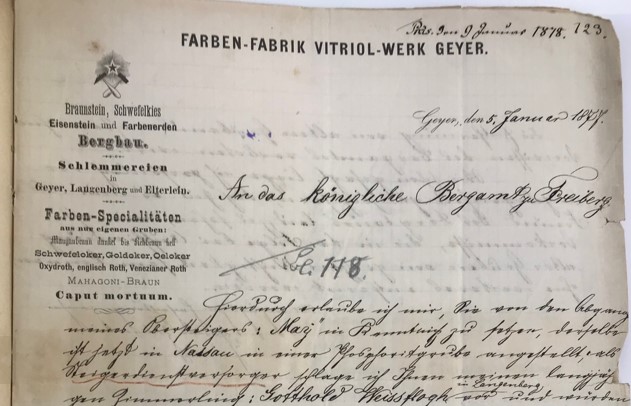 Präs. den 9 Januar 1878. 123.
FARBEN-FABRIK VITRIOL-WERK GEYER.
Braunstein, Schwefelkies
Eisenstein und Farbenerden
Bergbau.
Schlemmereien
in
Geyer, Langenberg und Elterlein.
Farben-Specialitäten
aus nur eigenen Gruben:
Schwefeloker, Goldoker, Oeloker
Oxydroth, englisch Roth, Venezianer Roth
MAHAGONI-BRAUN
Caput mortuum.
Geyer, den 5. Januar
An das königliche Bergamt zu Freiberg
Bl. 118.
Hierdurch erlaube ich mir, Sie von dem Abgang
meines Obersteigers: May in Kenntniß zu setzen, derselbe
ist jetzt in Nassau in einer Phosphoritgrube angestellt, als
Steigerdienstversorger schlage ich Ihnen meinen langjähri-
gen Zimmerling: Gotthold Weissflogh in Langenberg vor und